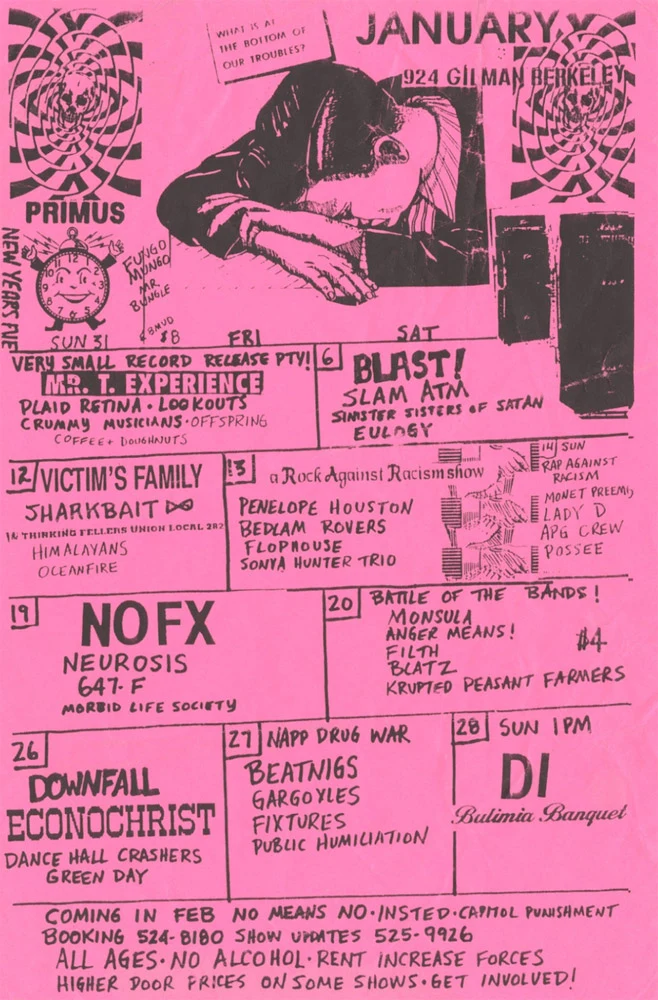 WHAT IS AT
THE BOTTOM OF
OUR TROUBLES?
JANUARY
924 GILMAN BERKELEY
PRIMUS
NEW YEARS EVE
FUNGO
MUNGO
MR.
BUNGLE
$8
SUN 31
FRI
SAT
VERY SMALL RECORD RELEASE PTY!
MR. T. EXPERIENCE
PLAID RETINA · LOOKOUTS
CRUMMY MUSICIANS · OFFSPRING
COFFEE + DOUGHNUTS
6
BLAST!
SLAM ATM
SINISTER SISTERS OF SATAN
EULOGY
12
VICTIM'S FAMILY
SHARKBAIT
THINKING FELLERS UNION LOCAL 282
HIMALAYANS
OCEANFIRE
13
a Rock Against Racism show
PENELOPE HOUSTON
BEDLAM ROVERS
FLOPHOUSE
SONYA HUNTER TRIO
14 SUN
RAP AGAINST
RACISM
MONET PREEMI,
LADY D
APG CREW
POSSEE
19
NOFX
NEUROSIS
647-F
MORBID LIFE SOCIETY
20
BATTLE OF THE BANDS!
MONSULA
ANGER MEANS!
FILTH
BLATZ
KRUPTED PEASANT FARMERS
$4
26
DOWNFALL
ECONOCHRIST
DANCE HALL CRASHERS
GREEN DAY
27
NAPP DRUG WAR
BEATNIGS
GARGOYLES
FIXTURES
PUBLIC HUMILIATION
28
SUN 1PM
DI
Bulimia Banquet
COMING IN FEB NO MEANS NO · INSTED · CAPITOL PUNISHMENT
BOOKING 524-8180 SHOW UPDATES 525-9926
ALL AGES · NO ALCOHOL · RENT INCREASE FORCES
HIGHER DOOR PRICES ON SOME SHOWS · GET INVOLVED!